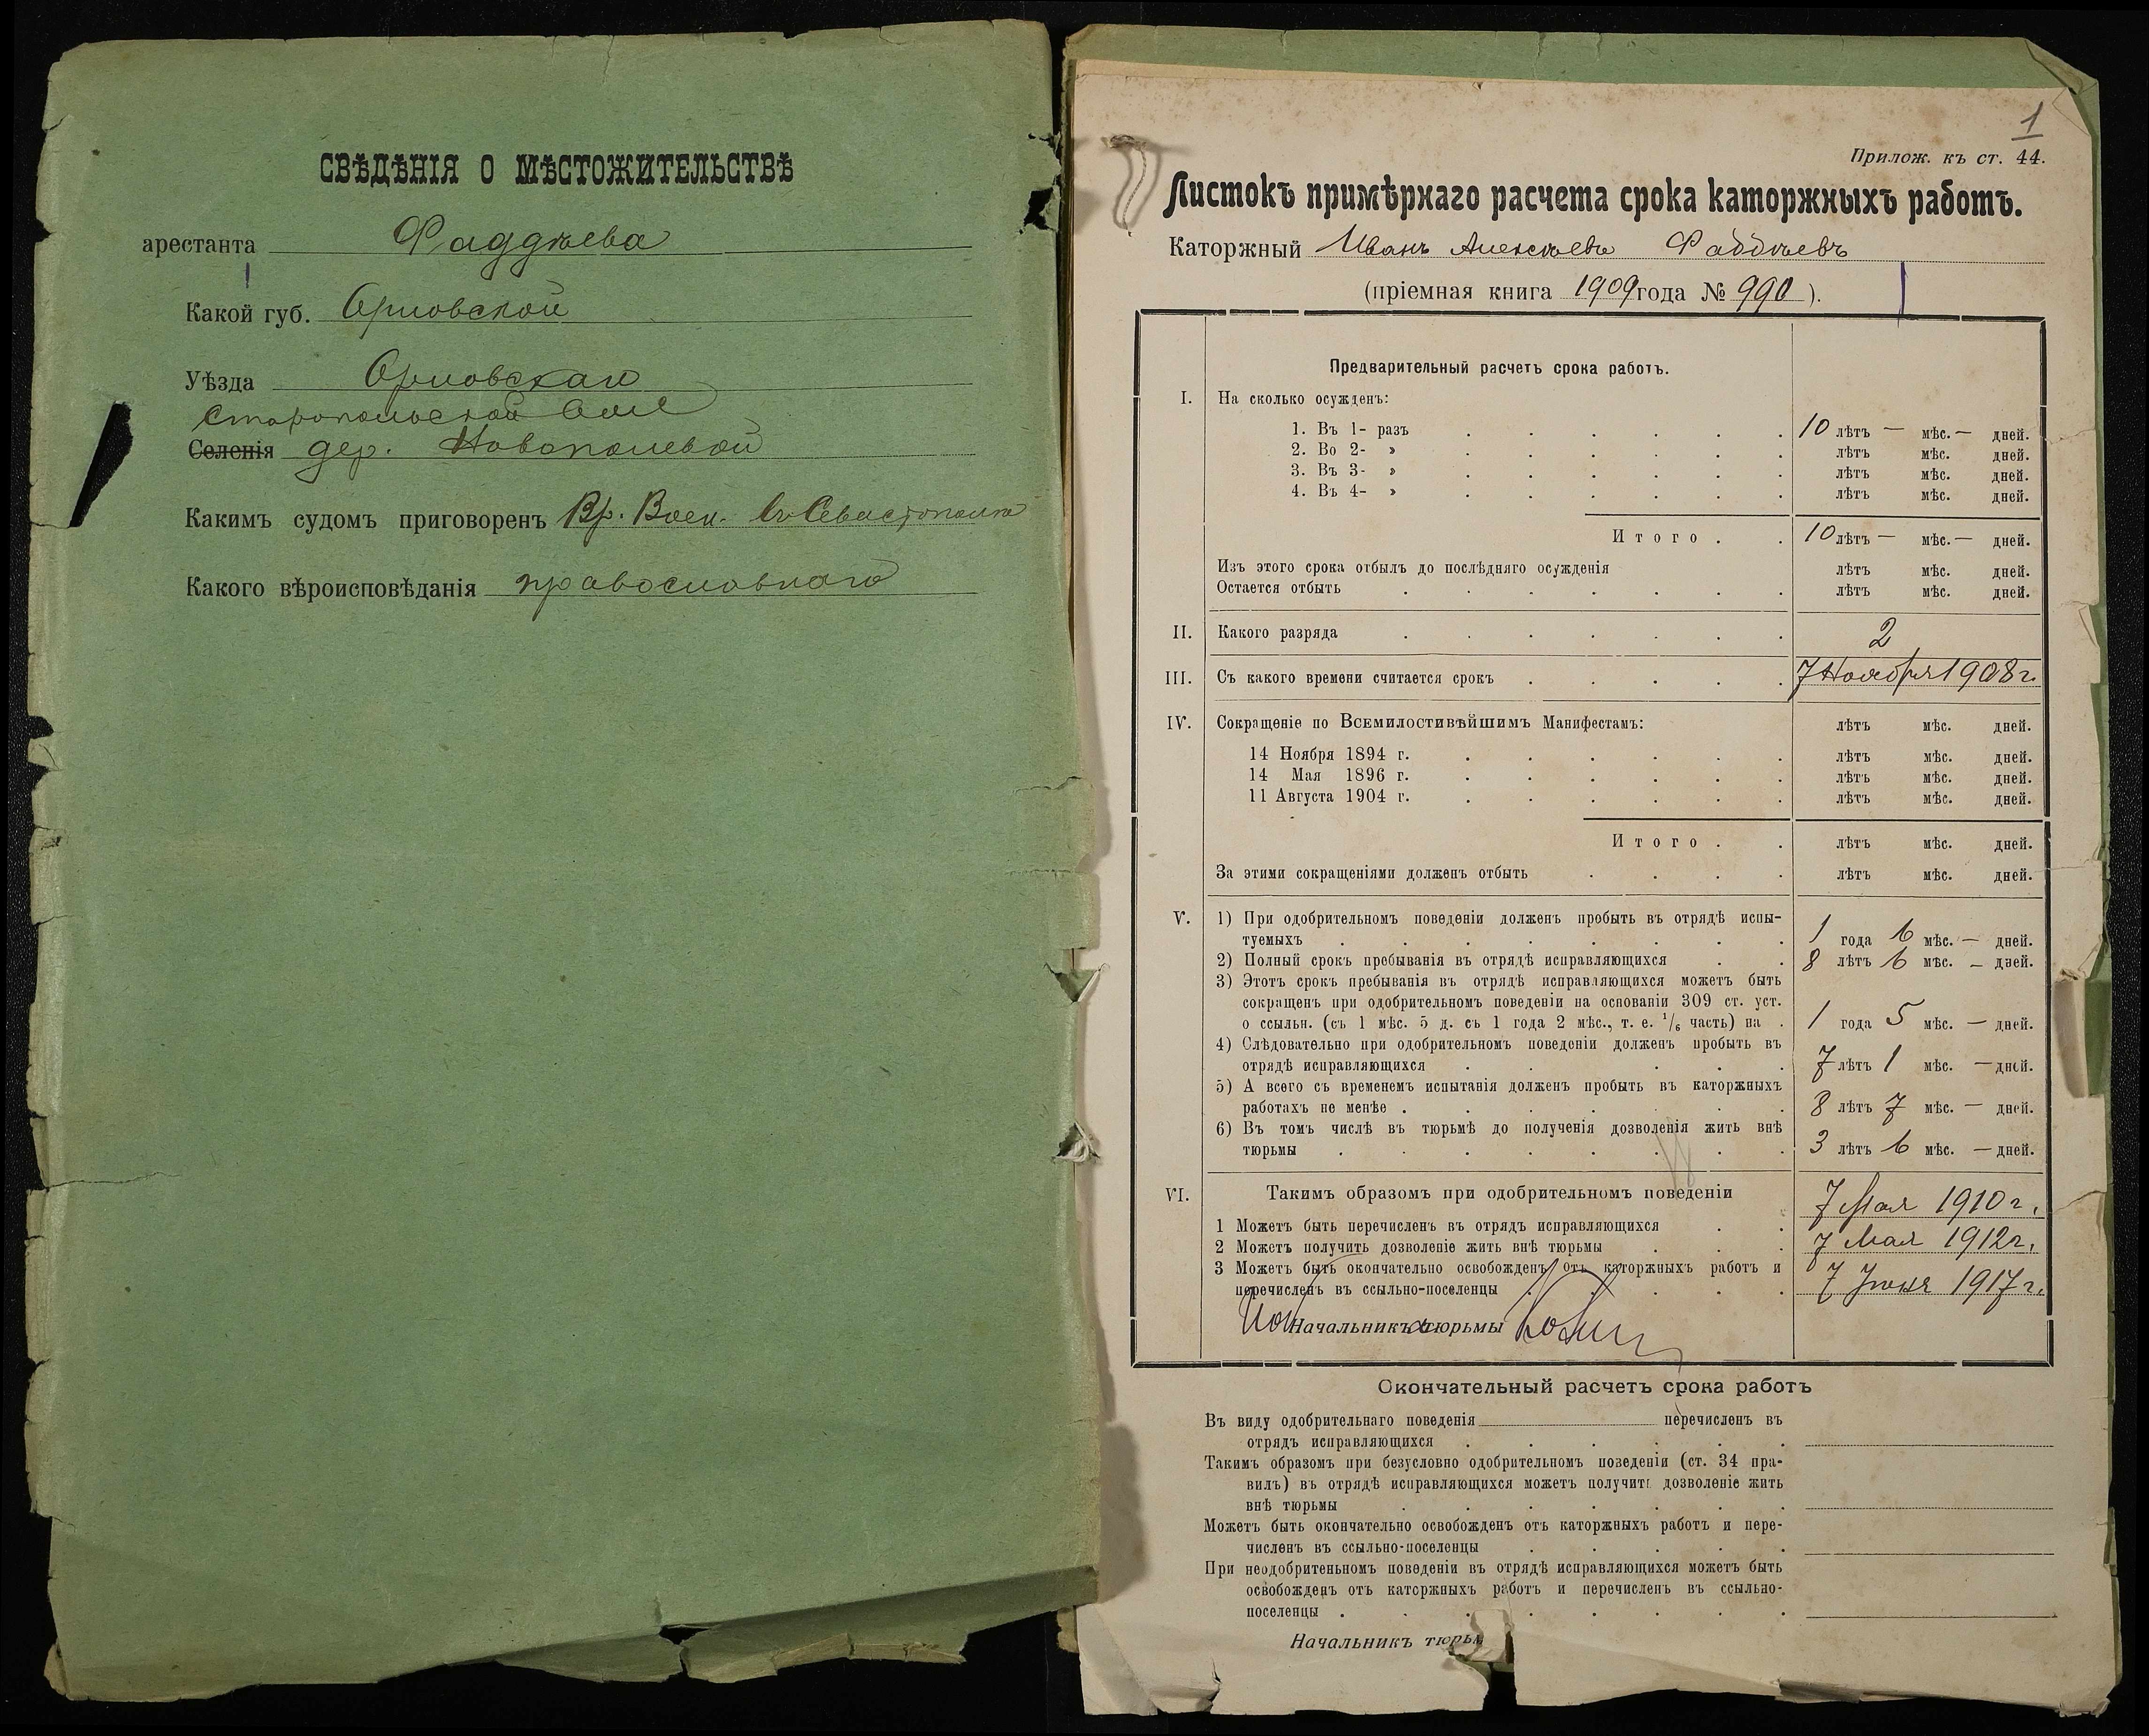 СВѢДѢНІЯ О МѢСТОЖИТЕЛЬСТВѢ
арестанта Фаддѣева
Какой губ. Орловской
Уѣзда Орловскаго
Старопольской вол
Селенія дер. Новополевой
Какимъ судомъ приговоренъ Вр. Воен. въ Севастополѣ
Какого вѣроисповѣданія православнаго
1
Прилож. къ ст. 44.
Листокъ примѣрнаго расчета срока каторжныхъ работъ.
Каторжный Иванъ Алексѣевъ Фаддѣевъ
(пріемная книга 1909 года № 990).
Предварительный расчетъ срока работъ.
I. На сколько осужденъ:
1. Въ 1- разъ 10 лѣтъ — мѣс. — дней.
2. Во 2- » лѣтъ мѣс. дней.
3. Въ 3- » лѣтъ мѣс. дней.
4. Въ 4- » лѣтъ мѣс. дней.
Итого . . 10 лѣтъ — мѣс. — дней.
Изъ этого срока отбылъ до послѣдняго осужденія лѣтъ мѣс. дней.
Остается отбыть лѣтъ мѣс. дней.
II. Какого разряда 2
III. Съ какого времени считается срокъ 7 Ноября 1908 г.
IV. Сокращеніе по Всемилостивѣйшимъ Манифестамъ: лѣтъ мѣс. дней.
14 Ноября 1894 г. лѣтъ мѣс. дней.
14 Мая 1896 г. лѣтъ мѣс. дней.
11 Августа 1904 г. лѣтъ мѣс. дней.
Итого . . лѣтъ мѣс. дней.
За этими сокращеніями долженъ отбыть лѣтъ мѣс. дней.
V. 1) При одобрительномъ поведеніи долженъ пробыть въ отрядѣ испы-
туемыхъ 1 года 6 мѣс. — дней.
2) Полный срокъ пребыванія въ отрядѣ исправляющихся 8 лѣтъ 6 мѣс. — дней.
3) Этотъ срокъ пребыванія въ отрядѣ исправляющихся можетъ быть
сокращенъ при одобрительномъ поведеніи на основаніи 309 ст. уст.
о ссыльн. (съ 1 мѣс. 5 д. съ 1 года 2 мѣс., т. е. 1/6 часть) на . 1 года 5 мѣс. — дней.
4) Слѣдовательно при одобрительномъ поведеніи долженъ пробыть въ
отрядѣ исправляющихся 7 лѣтъ 1 мѣс. — дней.
5) А всего съ временемъ испытанія долженъ пробыть въ каторжныхъ
работахъ не менѣе . 8 лѣтъ 7 мѣс. — дней.
6) Въ томъ числѣ въ тюрьмѣ до полученія дозволенія жить внѣ
тюрьмы 3 лѣтъ 6 мѣс. — дней.
VI. Такимъ образомъ при одобрительномъ поведеніи
1 Можетъ быть перечисленъ въ отрядъ исправляющихся 7 Мая 1910 г.
2 Можетъ получить дозволеніе жить внѣ тюрьмы 7 Мая 1912 г.
3 Можетъ быть окончательно освобожденъ отъ каторжныхъ работъ и
перечисленъ въ ссыльно-поселенцы 7 Іюня 1917 г.
Начальникъ тюрьмы
Окончательный расчетъ срока работъ
Въ виду одобрительнаго поведенія перечисленъ въ
отрядъ исправляющихся
Такимъ образомъ при безусловно одобрительномъ поведеніи (ст. 34 пра-
вилъ) въ отрядѣ исправляющихся можетъ получить дозволеніе жить
внѣ тюрьмы
Можетъ быть окончательно освобожденъ отъ каторжныхъ работъ и пере-
численъ въ ссыльно-поселенцы
При неодобрительномъ поведеніи въ отрядѣ исправляющихся можетъ быть
освобожденъ отъ каторжныхъ работъ и перечисленъ въ ссыльно-
поселенцы .
Начальникъ тюрьм